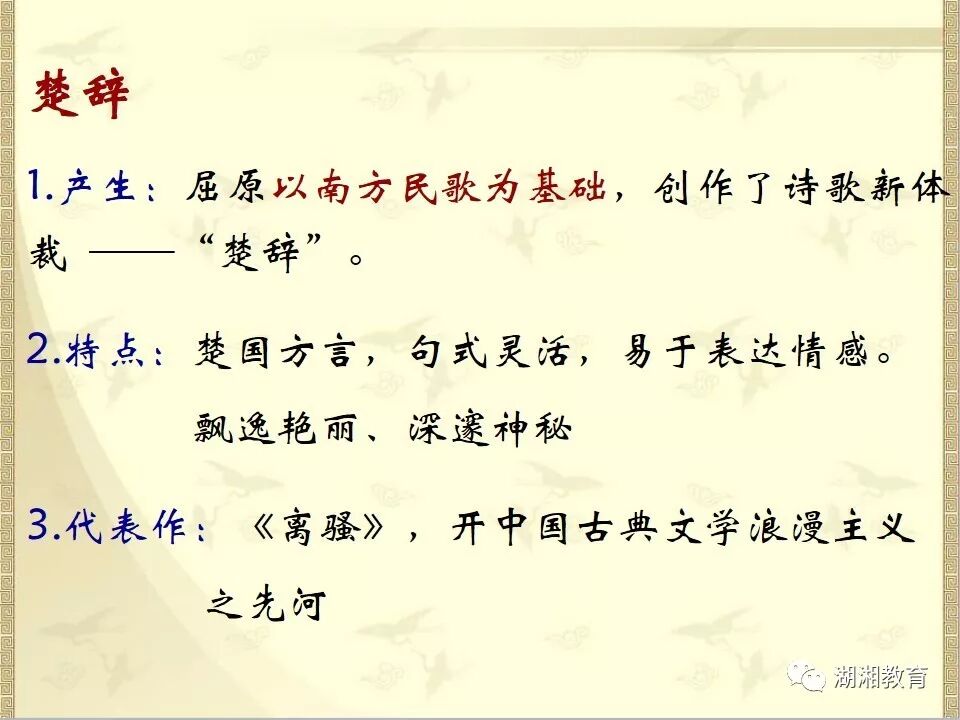 楚辞
1.产生：屈原以南方民歌为基础，创作了诗歌新体
裁 ——“楚辞”。
2.特点：楚国方言，句式灵活，易于表达情感。
飘逸艳丽、深邃神秘
3.代表作：《离骚》，开中国古典文学浪漫主义
之先河
湖湘教育